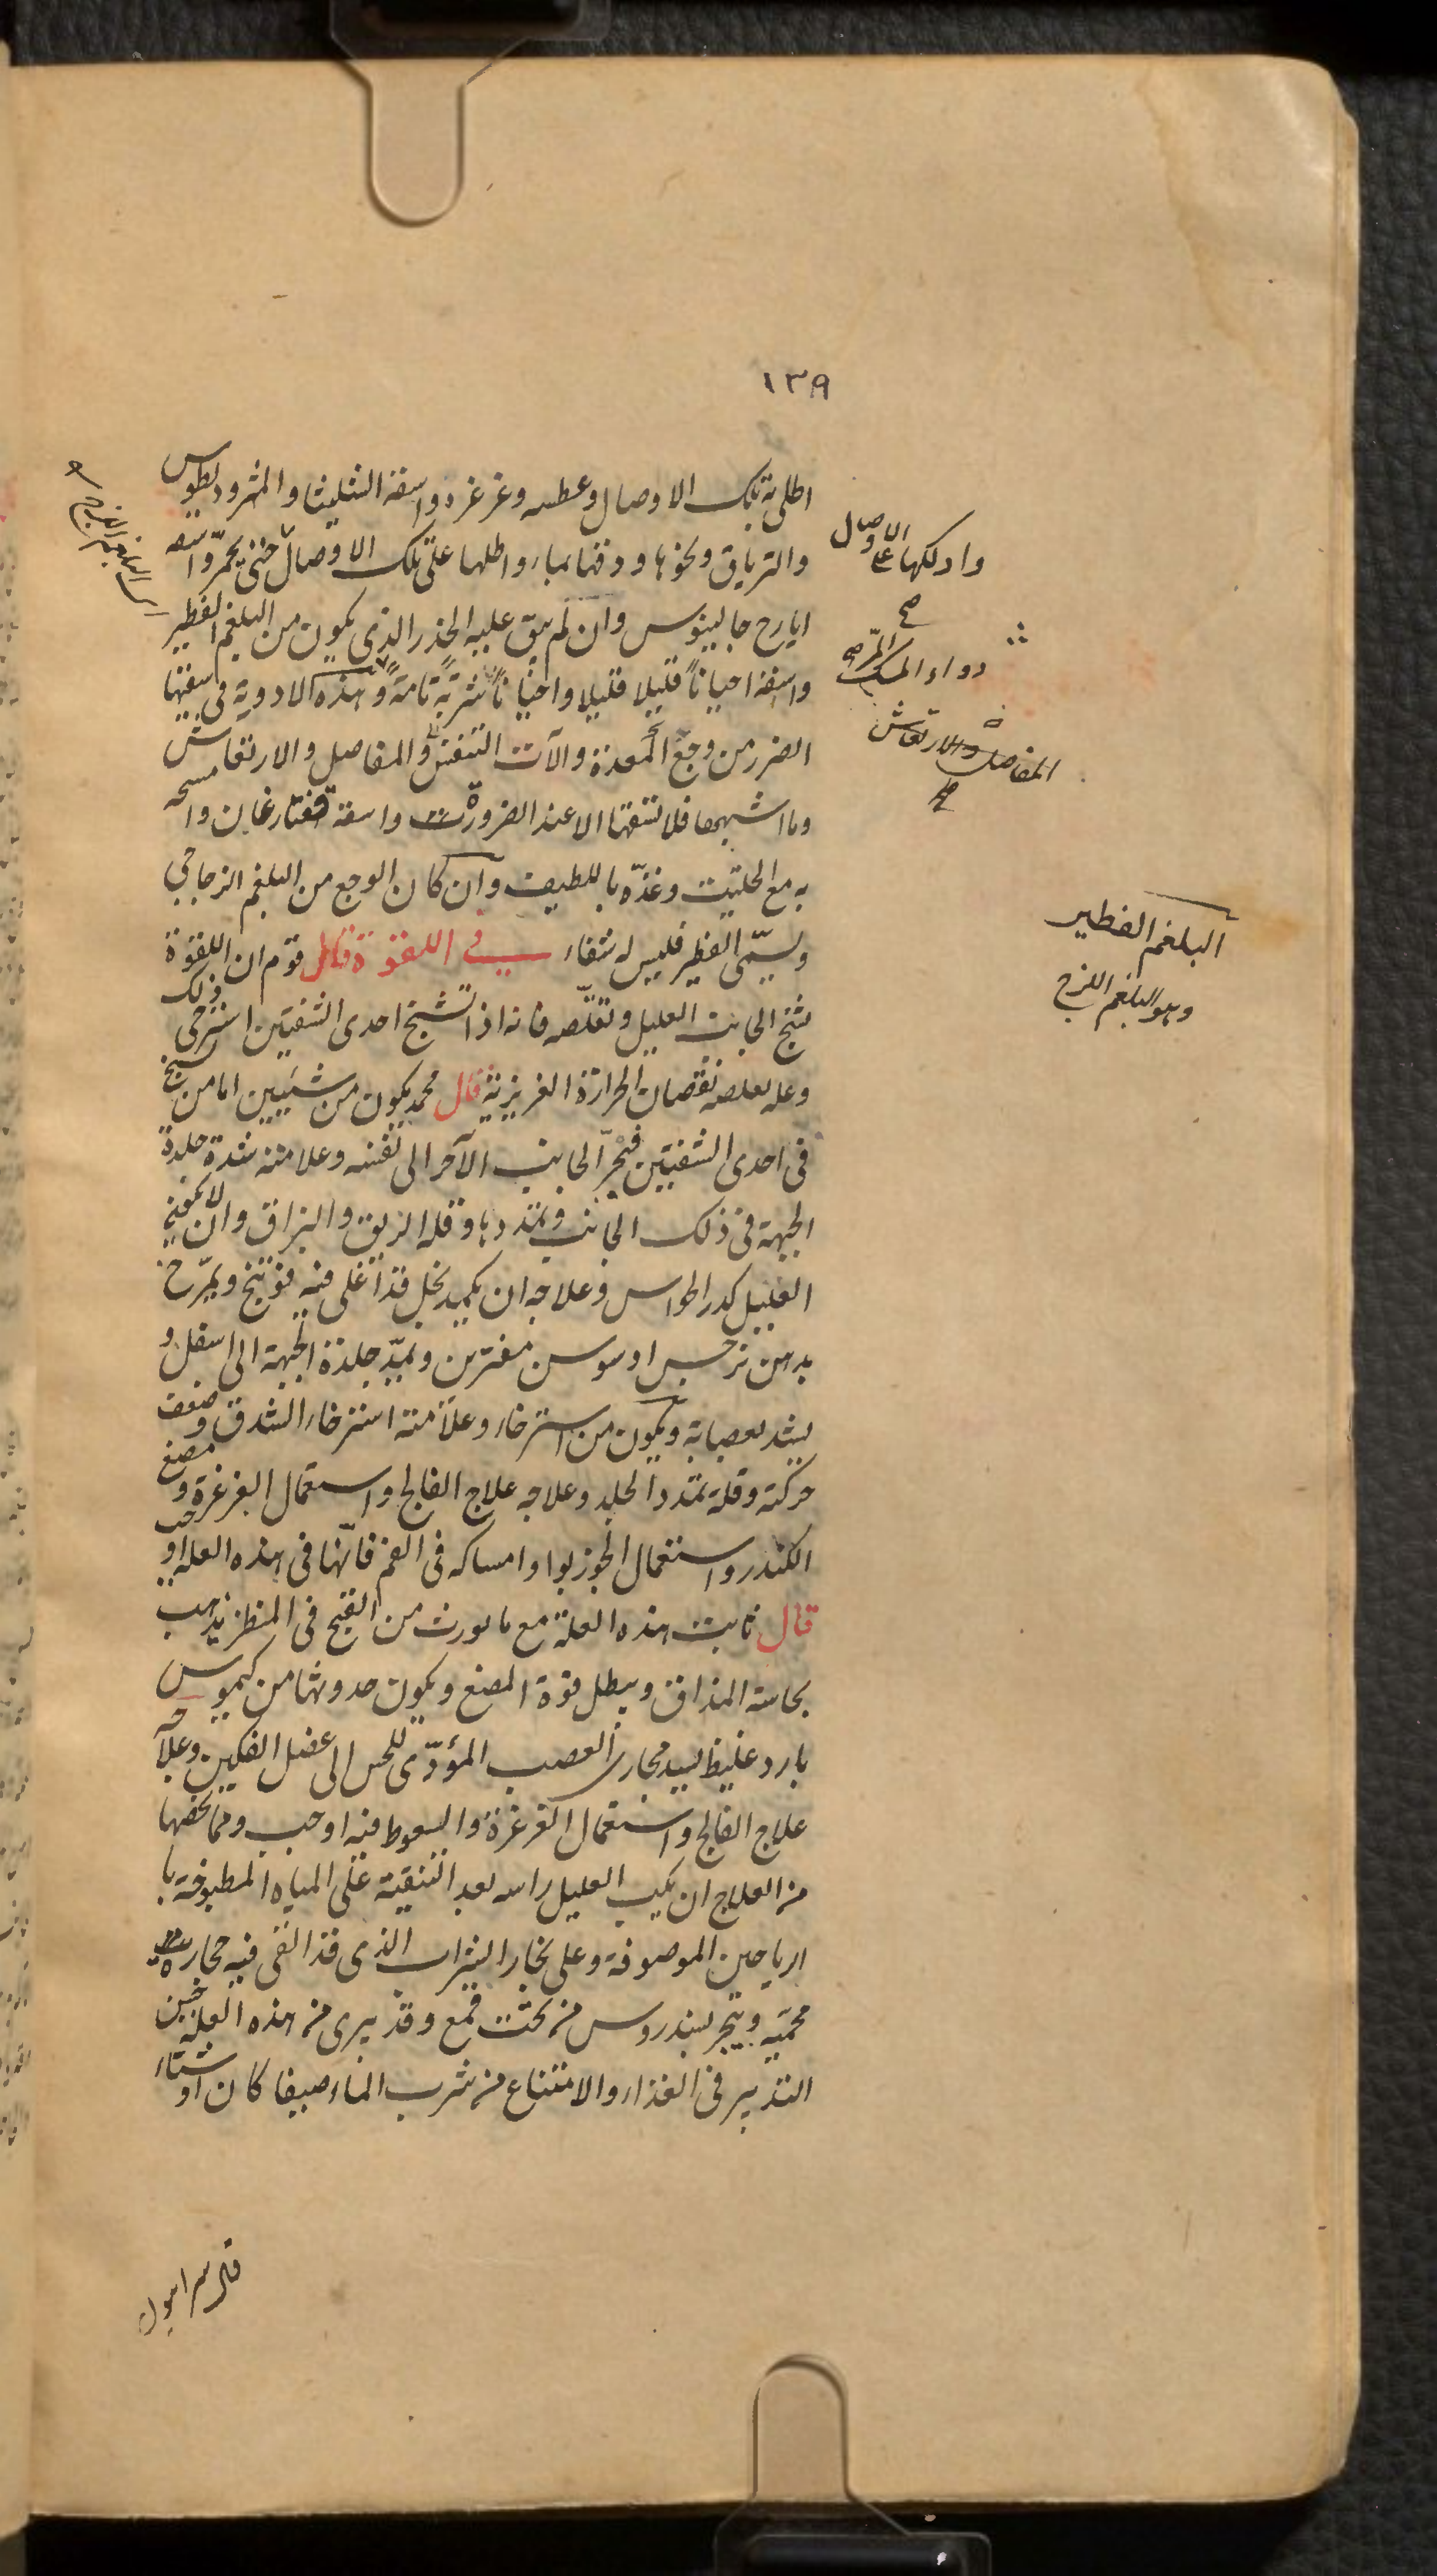 ١٣٩
اطلى به تلك الاوصال وعطسه وغرغره واسقه الشليثا والمثروديطوس
والترياق ونحوها ودفها بماء واطلها على تلك الاوصال حتى يحمر واسقه
ايارج جالينوس وان لم يبق عليه الخدر الذى يكون من البلغم الفطير
واسقه احيانا قليلا قليلا واحيانا شربة تامة وهذه الادوية فى سقيها
الضرر من وجع المعدة والآت التنفس والمفاصل والارتعاش
وما اشبهها فلا تسقها الا عند الضرورة واسقه وامسحه
به مع الحلتيت وغذّه باللطيف وان كان الوجع من البلغم الزجاجى
ويسمّى الفطير فليس له شفاء فى اللقوة قال قوم ان اللقوة
تشنج الجانب العليل وتقلّصه فانه اذا تشنج احدى الشفتين استرخى ذلك
وعلة تقلصه نقصان الحرارة الغريزية قال محمد يكون من شيئين اما من تشنج
فى احدى الشفتين فيجرّ الجانب الآخر الى نفسه وعلامته شدة جلدة
الجبهة فى ذلك الجانب وتمددها وقلة الريق والبزاق وان لا يكون
العليل كدر الحواس وعلاجه ان يكمد بخل قد اغلى فيه فوتنج ويمرّخ
بدهن نرجس او سوسن مفترين ويمدّ جلدة الجبهة الى اسفل و
يشد بعصابة ويكون من استرخاء وعلامته استرخاء الشدق وضعف
حركته وقلة تمدد الجلد وعلاجه علاج الفالج واستعمال الغرغرة ومضغ
الكندر واستعمال الجوزبوا وامساكه فى الفم فانّها فى هذه العلة اوجب
قال ثابت هذه العلة مع ما يورث من القبح فى المنظر يذهب
بحاسة المذاق ويبطل قوة المضغ ويكون حدوثها من كيموس
بارد غليظ يسد مجارى العصب المؤدّى للحس الى عضل الفكين وعلاجه
علاج الفالج واستعمال الغرغرة والسعوط فيه اوجب ومما يخصها
من العلاج ان يكب العليل راسه بعد التنقية على المياه المطبوخة با
لرياحين الموصوفة وعلى بخار الشراب الذى قد القى فيه حجارة
محميه ويبخر بسندروس من تحت قمع وقد يبرى من هذه العلة حسن
التدبير فى الغذاء والامتناع من شرب الماء صيفا كان او شتاء
وادلكها على الاوصال
صح
دواء المسك المر صح
المفاصل والارتعاش
البلغم الفطير
وهو البلغم اللزج